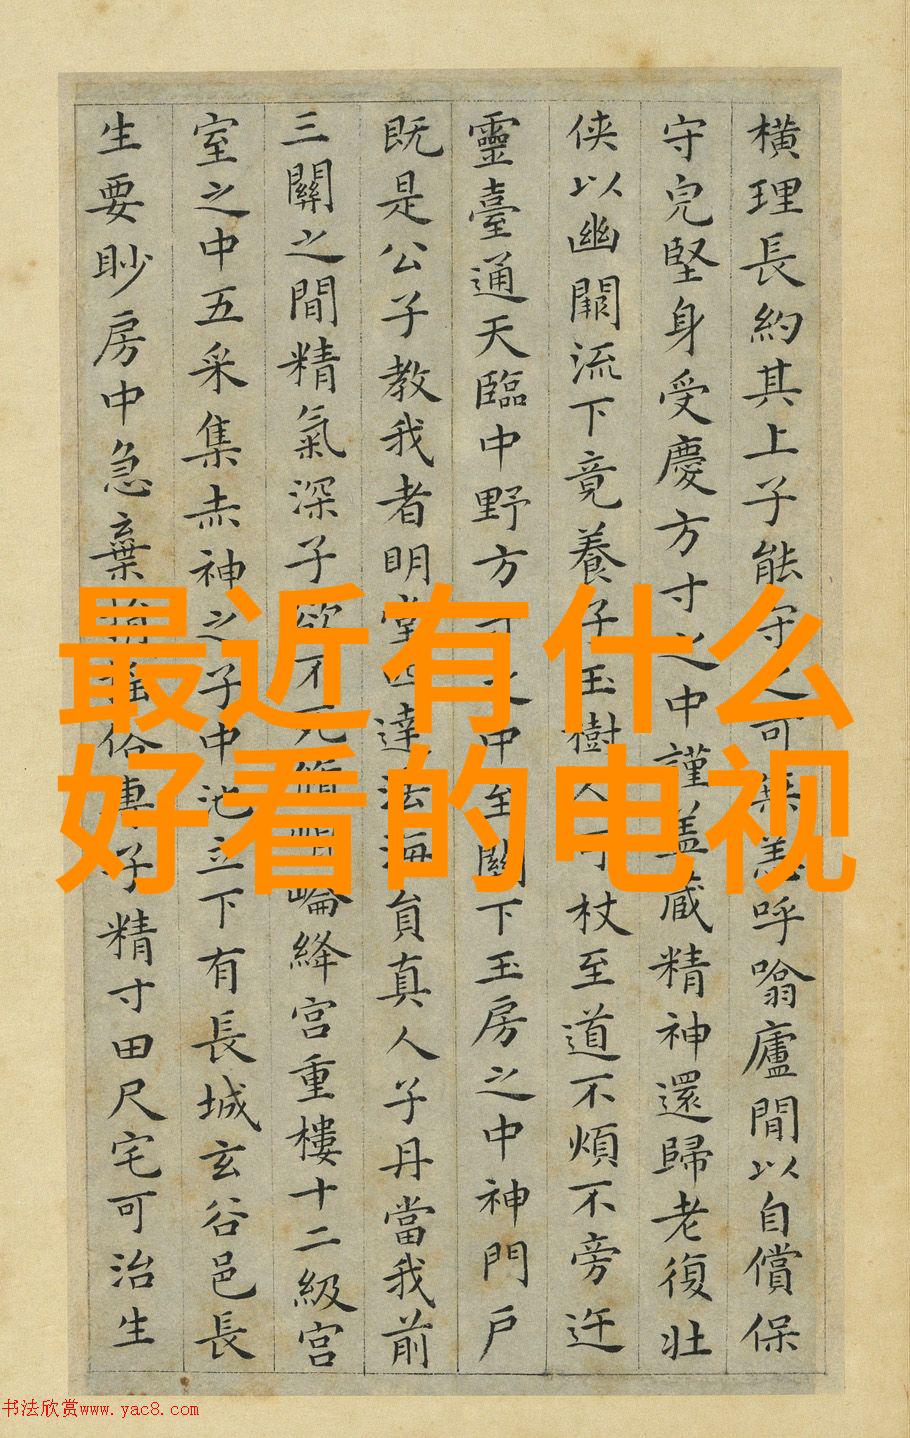 橫理長約其上子能守之可無恙呼噏廬間以自償保
守完堅身受慶方寸之中謹盖藏精神還歸老復壯
侠以幽闕流下竟養子玉樹人可杖至道不煩不旁迕
靈臺通天臨中野方寸之中至關下玉房之中神門戶
既是公子教我者明堂四達法海員真人子丹當我前
三關之間精氣深子欲不死脩崐崘絳宮重樓十二級宮
室之中五采集赤神之子中池立下有長城玄谷邑長
生要眇房中急棄捐 俗專子精寸田尺宅可治生
最近有什么
好看的电视
书法欣赏www.yac8.com